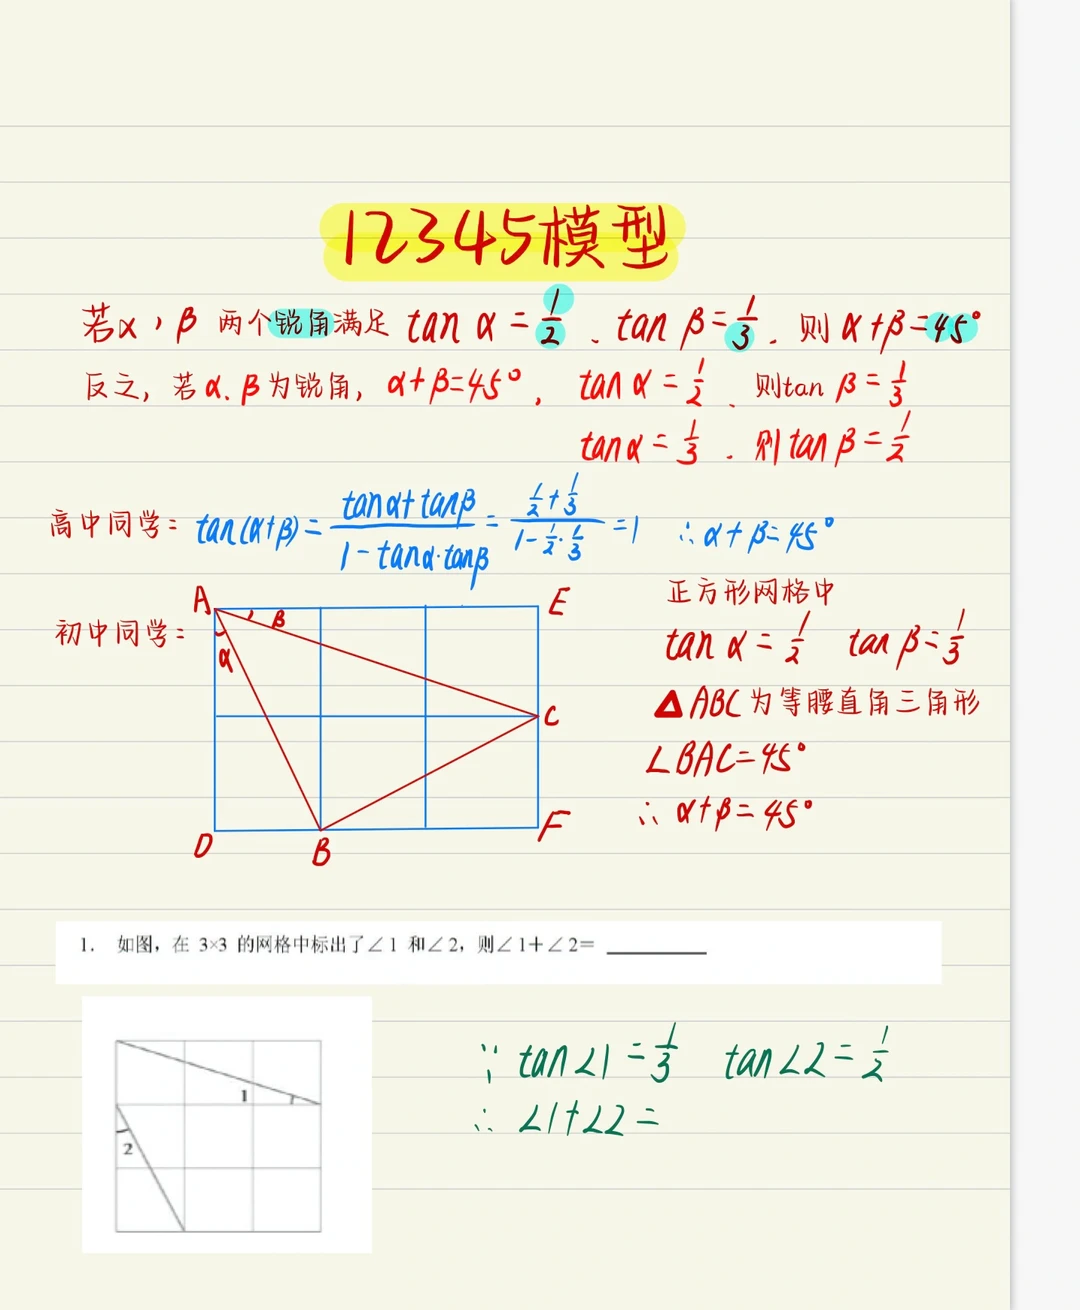 12345模型
若α，β 两个锐角满足 tan α = 1/2 、tan β = 1/3 . 则 α+β=45°
反之，若α、β为锐角，α+β=45°， tan α = 1/2 、则tan β = 1/3
tan α = 1/3 . 则 tan β = 1/2
高中同学： tan(α+β) = (tanα+tanβ)/(1-tanα·tanβ) = (1/2+1/3)/(1-1/2·1/3) = 1 ∴ α+β=45°
初中同学：
A β E
α
C
D B F
正方形网格中
tan α = 1/2 tan β = 1/3
△ABC为等腰直角三角形
∠BAC=45°
∴ α+β=45°
1. 如图，在 3×3 的网格中标出了∠1 和∠2，则∠1+∠2=
1
2
∵ tan∠1 = 1/3 tan∠2 = 1/2
∴ ∠1+∠2 =